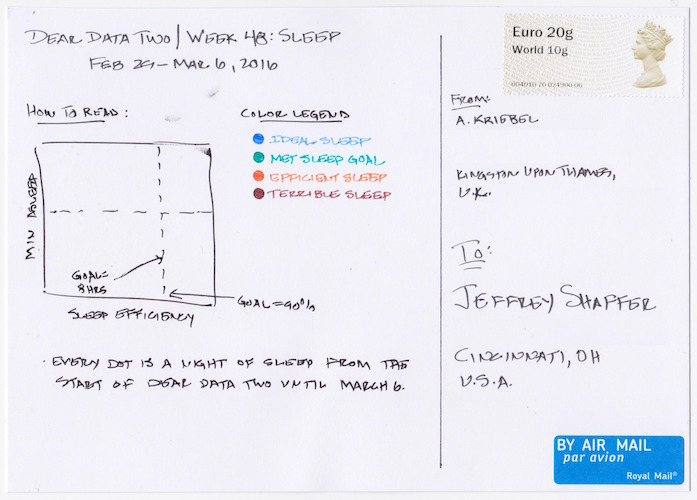 DEAR DATA TWO / WEEK 48: SLEEP
FEB 29 - MAR 6, 2016
HOW TO READ:
MIN ASLEEP
GOAL=
8HRS
GOAL=90%
SLEEP EFFICIENCY
COLOR LEGEND
IDEAL SLEEP
MET SLEEP GOAL
EFFICIENT SLEEP
TERRIBLE SLEEP
· EVERY DOT IS A NIGHT OF SLEEP FROM THE
START OF DEAR DATA TWO UNTIL MARCH 6.
Euro 20g
World 10g
004010 76 024900 06
FROM:
A. KRIEBEL
KINGSTON UPON THAMES,
U.K.
TO:
JEFFREY SHAFFER
CINCINNATI, OH
U.S.A.
BY AIR MAIL
par avion
Royal Mail®